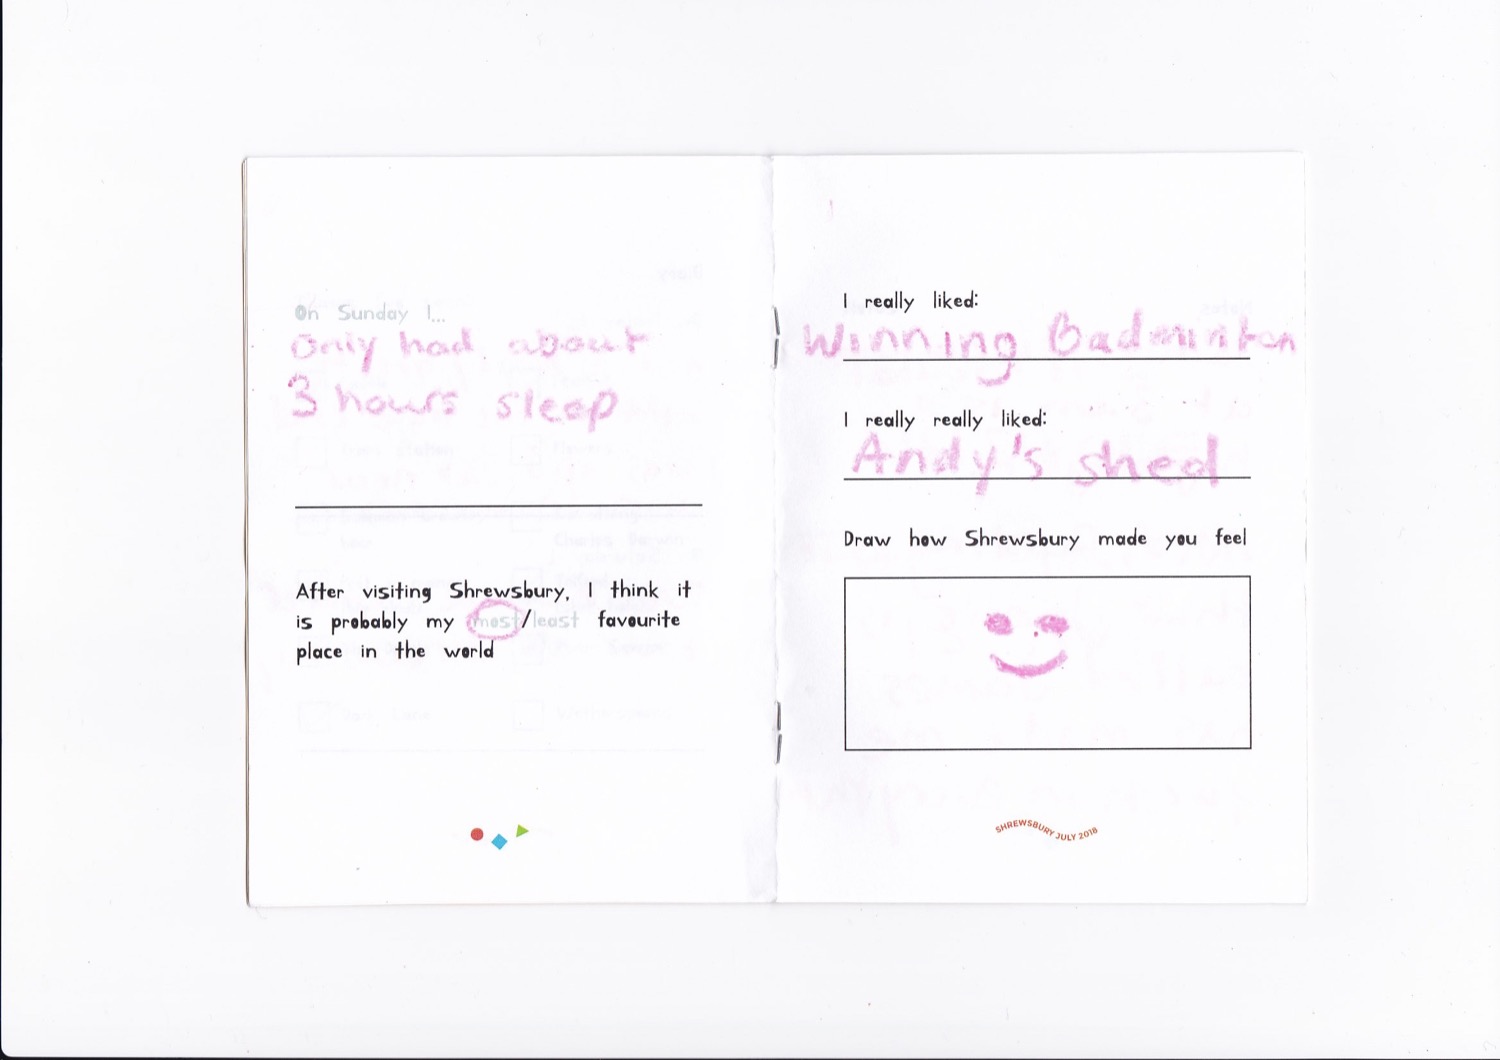 On Sunday I...
Only had about
3 hours sleep
After visiting Shrewsbury, I think it
is probably my most/least favourite
place in the world
I really liked:
Winning Badminton
I really really liked:
Andy's shed
Draw how Shrewsbury made you feel
SHREWSBURY JULY 2018